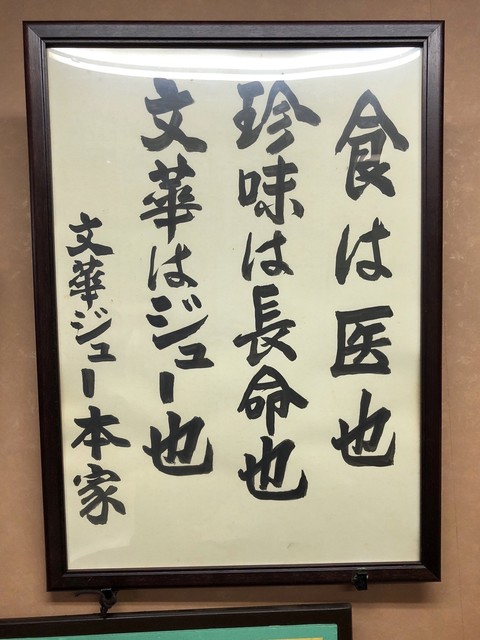 食は医也
珍味は長命也
文華はジュー也
文華ジュー本家